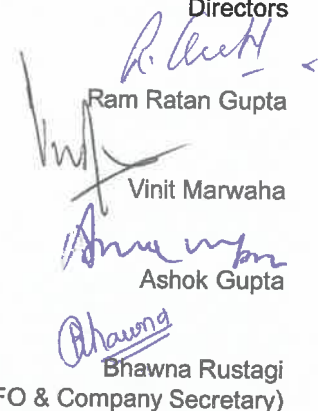 Directors
Ram Ratan Gupta
Vinit Marwaha
Ashok Gupta
Bhawna
Bhawna Rustagi
FO & Company Secretary)